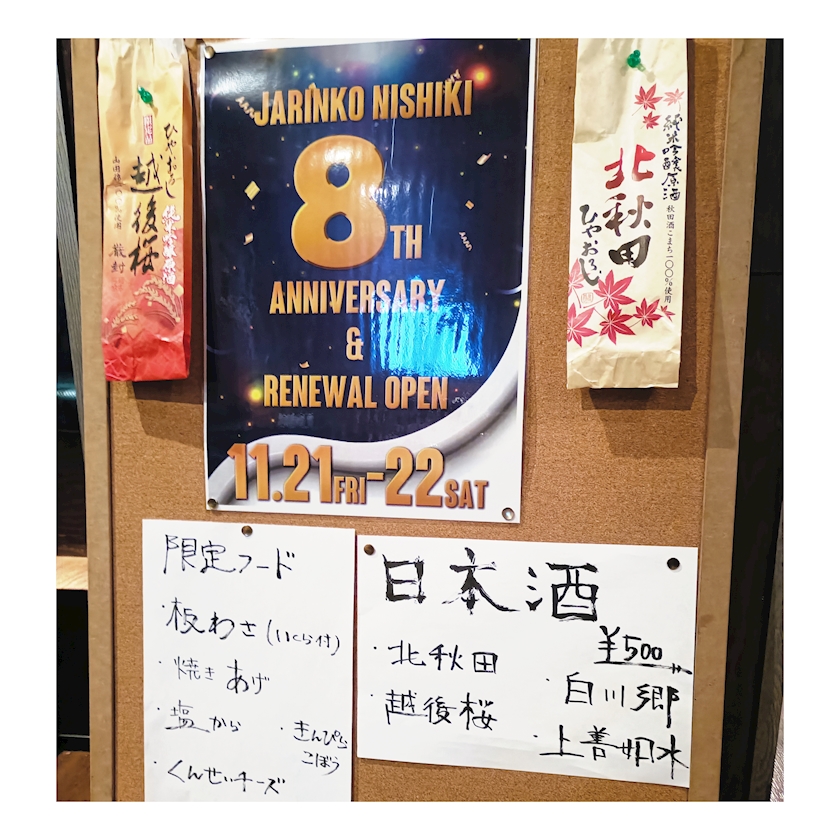 JARINKO NISHIKI
8TH
ANNIVERSARY
&
RENEWAL OPEN
11.21FRI-22SAT
限定品
ひやおろし
越後桜
純米吟醸原酒
純米吟醸原酒
秋田酒こまち一〇〇%使用
北秋田
ひやおろし
限定フード
・板わさ(いくら付)
・焼きあげ
・塩から
・きんぴら
ごぼう
・くんせいチーズ
日本酒
¥500
・北秋田
・越後桜
・白川郷
・上善如水